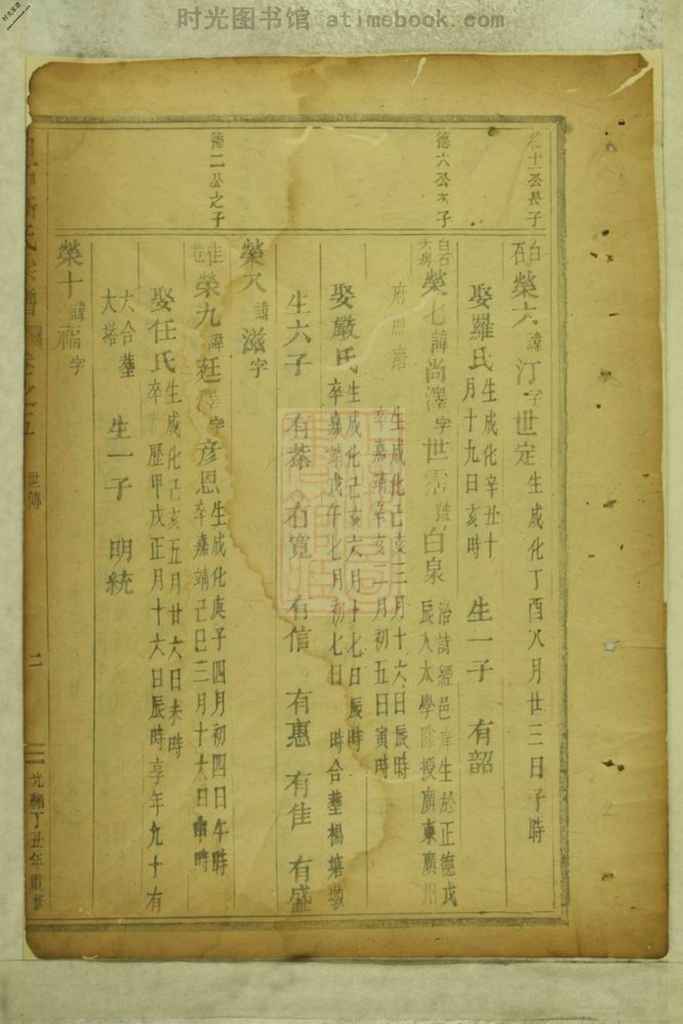 时光图书馆 atimebook.com
十一公長子
德六公次子
德二公之子
白石
榮六諱汀字世定 生成化丁酉八月廿三日子時
娶羅氏 生成化辛丑十月十九日亥時 生一子 有韶
白石
榮七諱尚澤字世 號白泉 治詩經邑庠生於正德戊辰入太學 授廣東廣州
府照磨 生成化己亥三月十六日辰時
卒嘉靖辛亥二月初五日寅時
娶嚴氏 生成化己亥六月十七日辰時
卒嘉靖戊午七月初七日 時合塟楊
生六子 有 有寬 有信 有惠 有佳 有盛
榮八諱滋字
榮九諱廷澤字彦恩 生成化庚子四月初四日午時
卒嘉靖己巳三月十六日申時
娶任氏 生成化己亥五月廿六日未時
卒 歷甲戌正月十六日辰時享年九十有
六合塟大塔 生一子 明統
榮十諱福字
氏宗譜 卷之五 世傳 二 光緒丁丑年重修